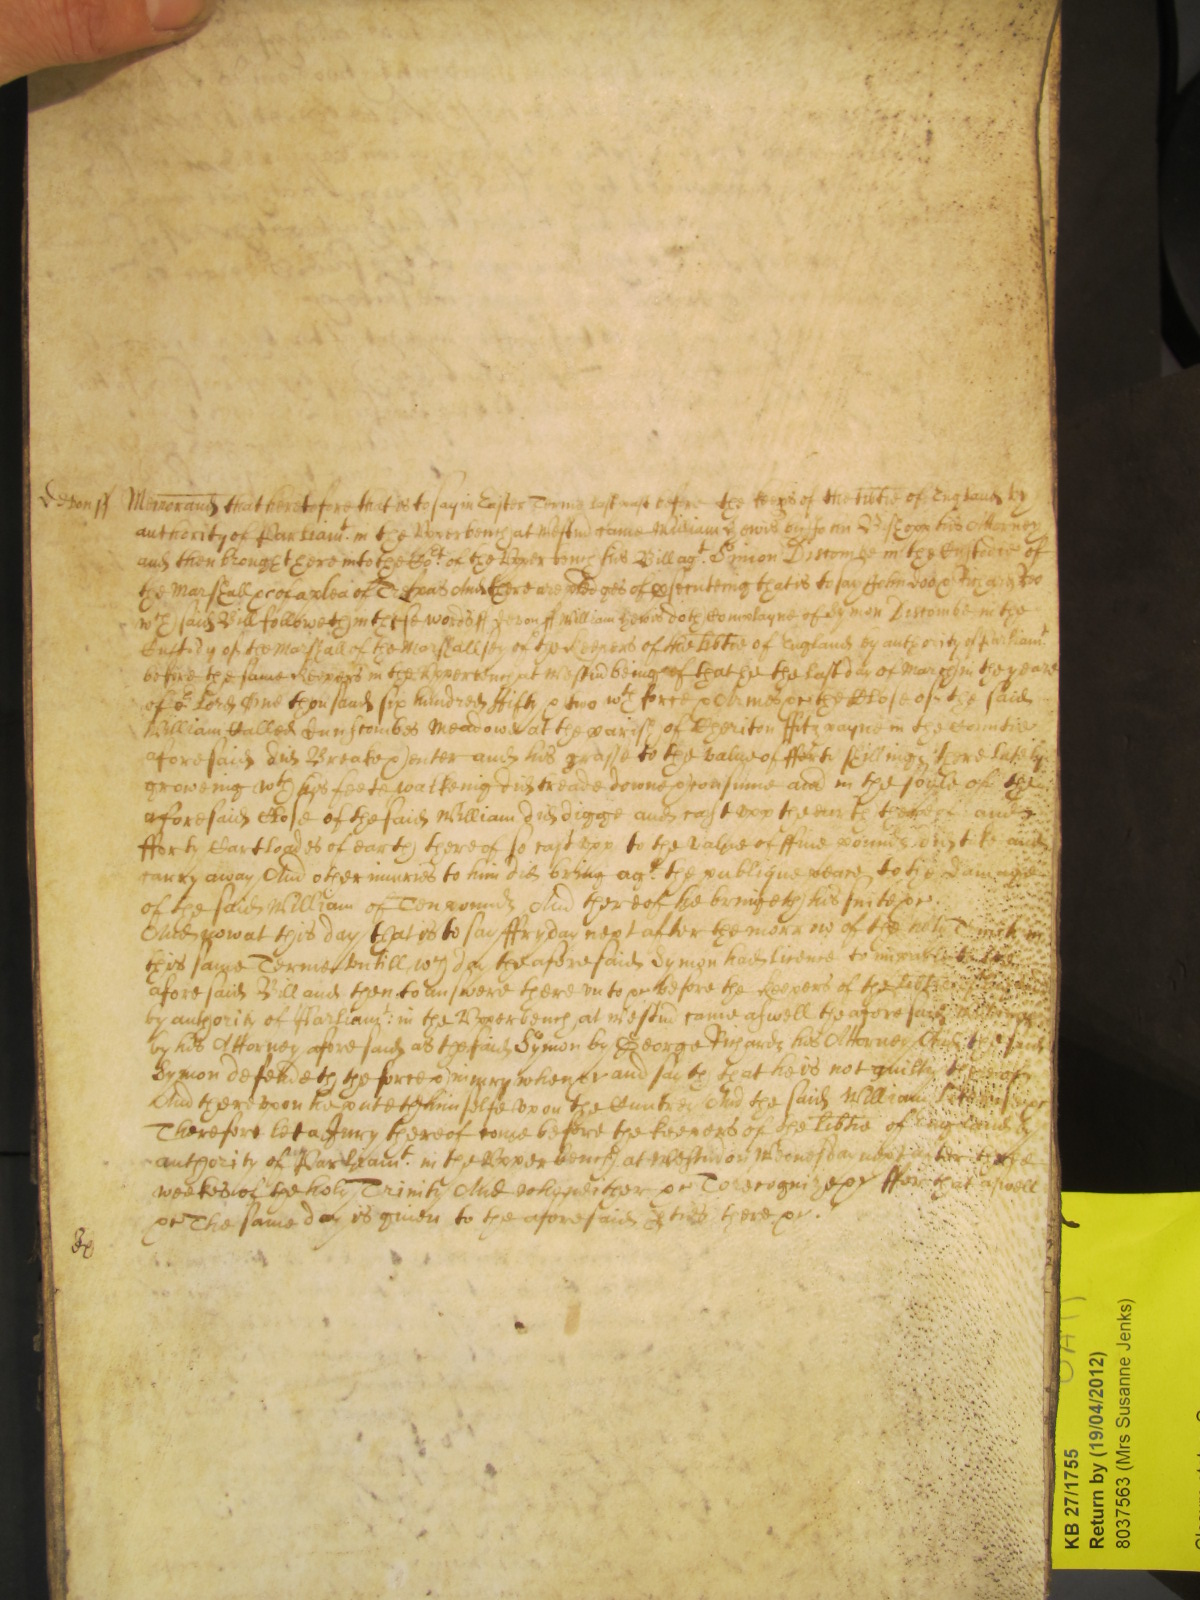 Devon ss Memorand that heretofore that is to say in Easter Terme last past before the keeps of the libtie of England by
authority of Parliamt. in the Upper bench at Westm came William Lewis by John his Attorney
and then brought here into the Cort. of the Upper bench his Bill agt. Simon Discombe in the Custodie of
the Marshall &c of a plea of Trespas And there are pledges of psecuteing that is to say John Doo & Richard Roo
wch said Bill followeth in these words ss Devon ss William Lewis doth Complayne of Symon Discombe in the
Custody of the Marshall of the Marshallsey of the keepers of the libtie of England by authority of Parliamt
before the same keepers in the Upper bench at Westm being &c of that he the last day of March in the yeare
of or Lord One thousand six hundred fifty & two wth force & Armes &c the Close of the said
William Called Meadow at the parish of Cheriton ffitzpayne in the Countie
aforesaid did Breake & enter and his grasse to the value of fforti shillings there lately
groweing wth his feete walkeing did treade downe & consume and in the soyle of the
aforesaid Close of the said William did digge and cast upp the earth thereof and
fforty Cartloades of earth thereof so cast upp to the value of ffive pounds did take and
carry away And other iniuries to him did bring agt. the publique peace to the Damage
of the said William of Ten pounds And thereof he bringeth his suite &c.
And now at this day that is to say ffryday next after the morrow of the holy Trinity in
this same Terme Untill wch day the aforesaid Symon had licence to imparle to the
aforesaid Bill and then to answere there unto &c before the keepers of the libtie of England
by authority of Parliamt: in the Upper bench at Westm came aswell the aforesaid William
by his Attorney aforesaid as the said Symon by George Richards his Attorney And the said
Symon defendeth the force & iniury when &c and saith that he is not guilty thereof
And thereupon he puteth himselfe upon the Cuntrey And the said William likewise &c
Therefore let a Jury thereof come before the keepers of the libtie of England by
authority of Parliamt. in the Upper bench at Westm on Wednesday next after three
weekes of the holy Trinity And who neither &c To recognize &c ffor that aswell
&c The same day is given to the aforesaid pties there &c.
KB 27/1755
Return by (19/04/2012)
8037563 (Mrs Susanne Jenks)